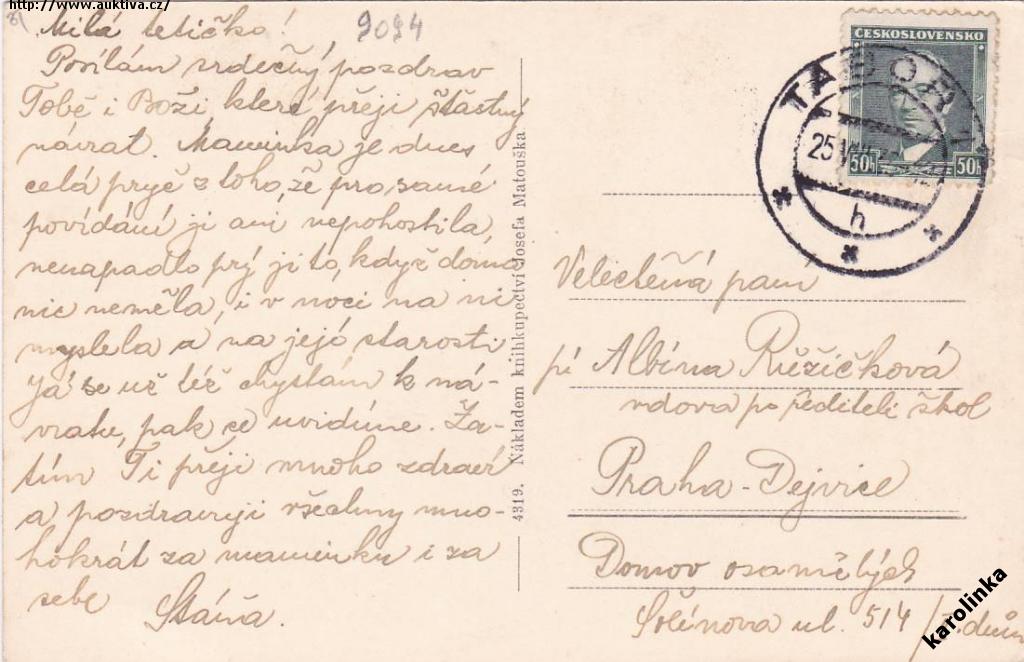 http://www.auktiva.cz/
9094
Milá tetičko!
Posílám srdečný pozdrav
Tobě i Boži, které přeji šťastný
návrat. Maminka je dnes
celá pryč z toho, že pro samé
povídání ji ani nepohostila,
nenapadlo prý ji to, když doma
nic neměla, i v noci na ni
myslela a na její starosti
Já se už též chystám k ná-
vratu, pak se uvidíme. Za-
tím Ti přeji mnoho zdraví
a pozdravuji všechny mno-
hokrát za maminku i za
sebe Stáňa.
4319. Nákladem knihkupectví Josefa Matouška
ČESKOSLOVENSKO
50h 50h
TÁBOR 1
25 VII
* h *
*
Velectěná paní
pí Albína Růžičková
vdova po řediteli škol
Praha-Dejvice
Domov osamělých
Solínova ul. 514
karolinka